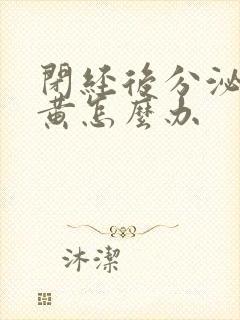 閉經後分泌
黄怎麼办
沐潔